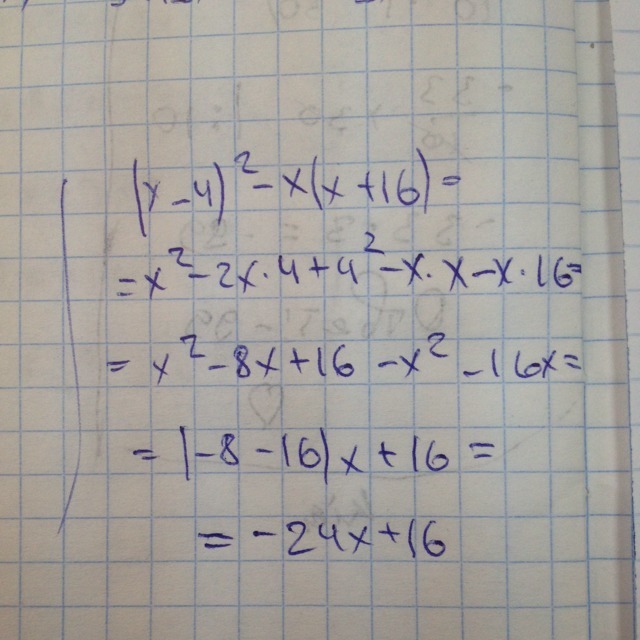 (x-4)²-x(x+16)=
=x²-2x·4+4²-x·x-x·16=
=x²-8x+16-x²-16x=
=(-8-16)x+16=
=-24x+16